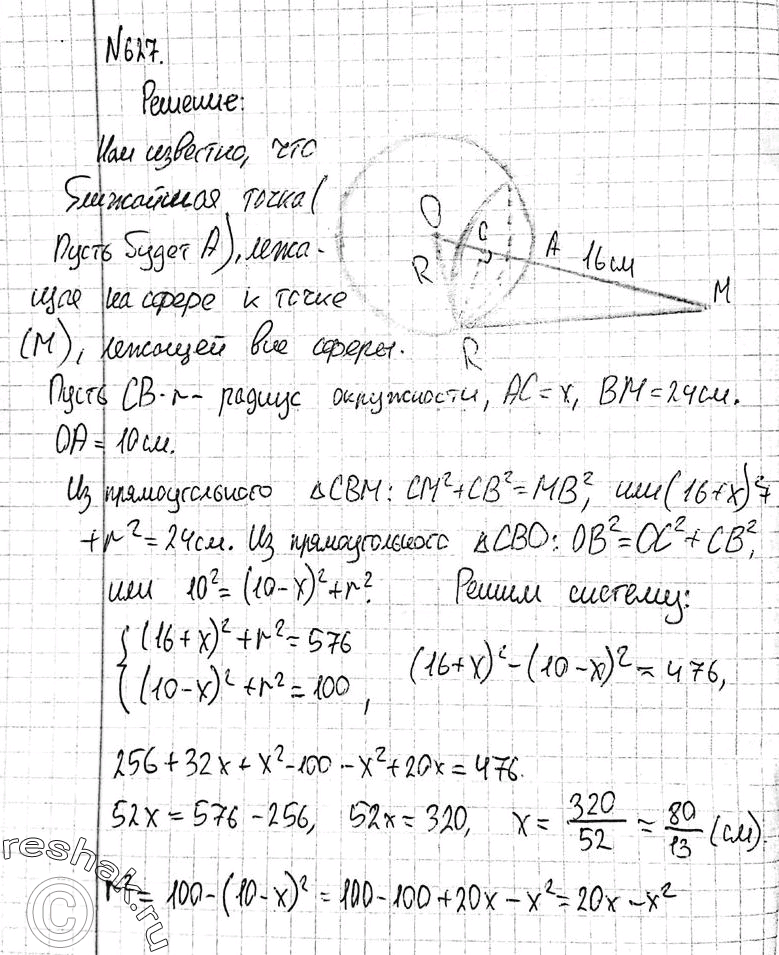 №627.
Решение:
Нам известно, что
ближайшая точка (
Пусть будет А), лежа-
щая на сфере к точке
(М), лежащей вне сферы.
O
C
A
16 см
M
R
R
Пусть CB·r – радиус окружности, AC = x, BM = 24 см.
OA = 10 см.
Из прямоугольного ΔCBM: CM² + CB² = MB², или (16+x)² +
+ r² = 24 см. Из прямоугольного ΔCBO: OB² = OC² + CB²,
или 10² = (10-x)² + r². Решим систему:
{ (16+x)² + r² = 576
(10-x)² + r² = 100, (16+x)² - (10-x)² = 476,
256 + 32x + x² - 100 - x² + 20x = 476.
52x = 576 - 256, 52x = 320, x = 320/52 = 80/13 (см).
r² = 100 - (10-x)² = 100 - 100 + 20x - x² = 20x - x²
reshak.ru
©